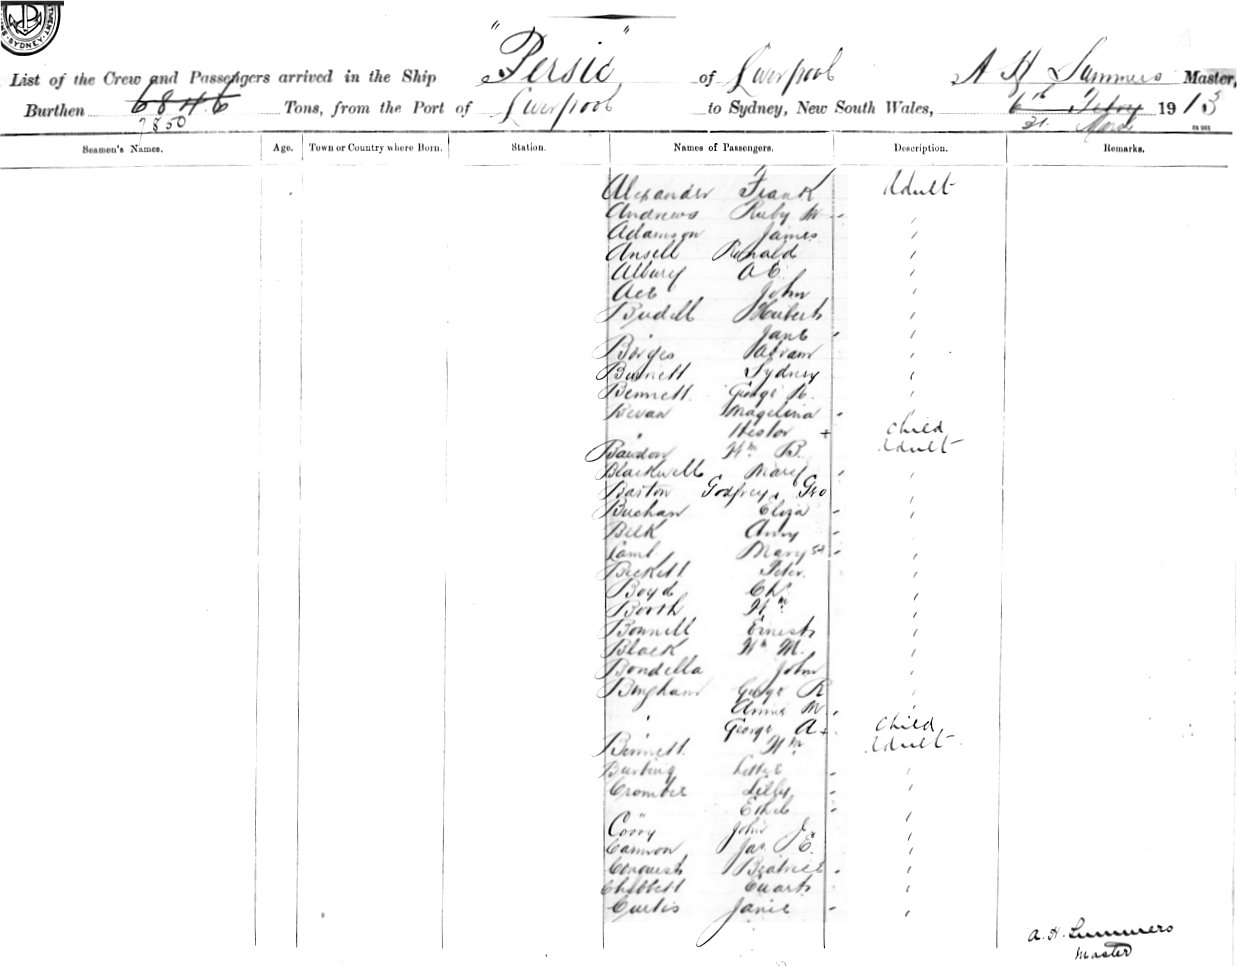 SYDNEY
List of the Crew and Passengers arrived in the Ship "Persic" of Liverpool A H Summers Master,
Burthen 6846 Tons, from the Port of Liverpool to Sydney, New South Wales, 6th Febry 1913
7850 31. March
Seamen's Names. Age. Town or Country where Born. Station. Names of Passengers. Description. Remarks.
Alexander Frank Adult
Andrews Ruby M "
Adamson James "
Ansell Ronald "
Albury A E "
Ace John "
Hubert "
" Jane "
Borges Abram "
Burnett Sydney "
Bennett George H. "
Bevan Magelina "
" Hestor + Child
Bawdon Wm B. Adult
Blackwell Mary "
Barton Godfrey, Geo "
Buchan Eliza "
Belk Anny "
Lamb Mary "
Beckett Peter "
Boyd Ch "
Booth Wm "
Bonnell Ernest "
Black Wm M. "
Bondella John "
Bingham George R "
" Annie M "
" George A + Child
Bennett Wm Adult
Bunting Lottie "
Crombie Lilly "
" Ethel "
Corry John J "
Cannon Jas. E. "
Conquest Beatrice "
Chibbett "
Curtis Janie "
A. H. Summers
Master